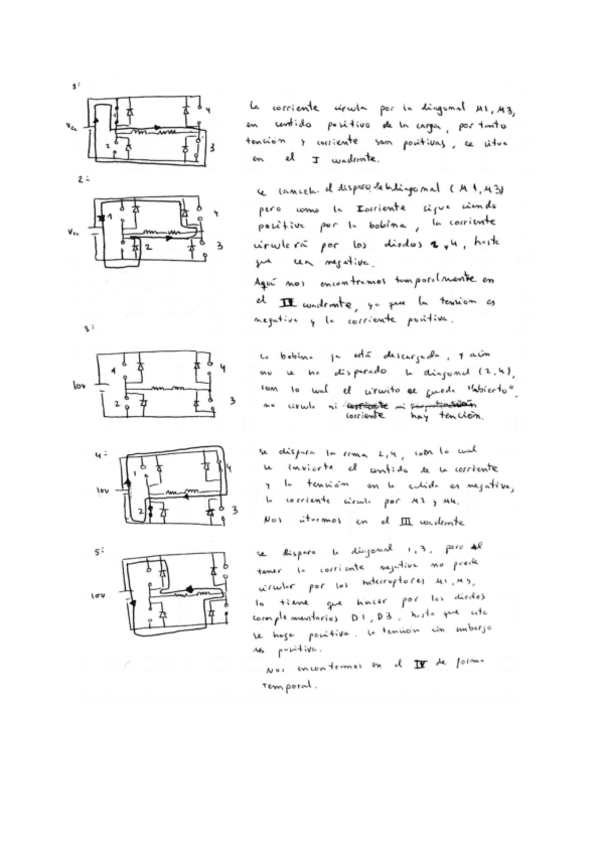 1:
La corriente circula por la diagonal M1, M3,
en sentido positivo de la carga, por tanto
tensión y corriente son positivas, se situa
en el I cuadrante.
Vcc
4
2
3
2:
Se cancela el disparo de la diagonal (M1, M3)
pero como la Icorriente sigue siendo
positiva por la bobina, la corriente
circulará por los diodos 2, 4, hasta
que sea negativa.
Aquí nos encontramos temporalmente en
el IV cuadrante, ya que la tension es
negativa y la corriente positiva.
Vcc
1
4
2
3
3:
La bobina ya está descargada, y aún
no se ha disparado la diagonal (2,4),
con lo cual el circuito se queda "abierto",
no circula ni corriente ni
corriente hay tención.
10V
1
2
3
4:
Se dispara la rama 2,4, con lo cual
se invierte el sentido de la corriente
y la tensión en la salida es negativa,
la corriente circula por M2 y M4.
Nos situamos en el III cuadrante
10V
1
4
2
3
5:
Se dispara la diagonal 1,3, pero al
tener la corriente negativa no puede
circular por los interruptores M1, M3,
lo tiene que hacer por los diodos
complementarios D1, D3, hasta que esta
se haga positiva. La tensión sin embargo
es positiva.
Nos encontramos en el IV de forma
temporal.
10V